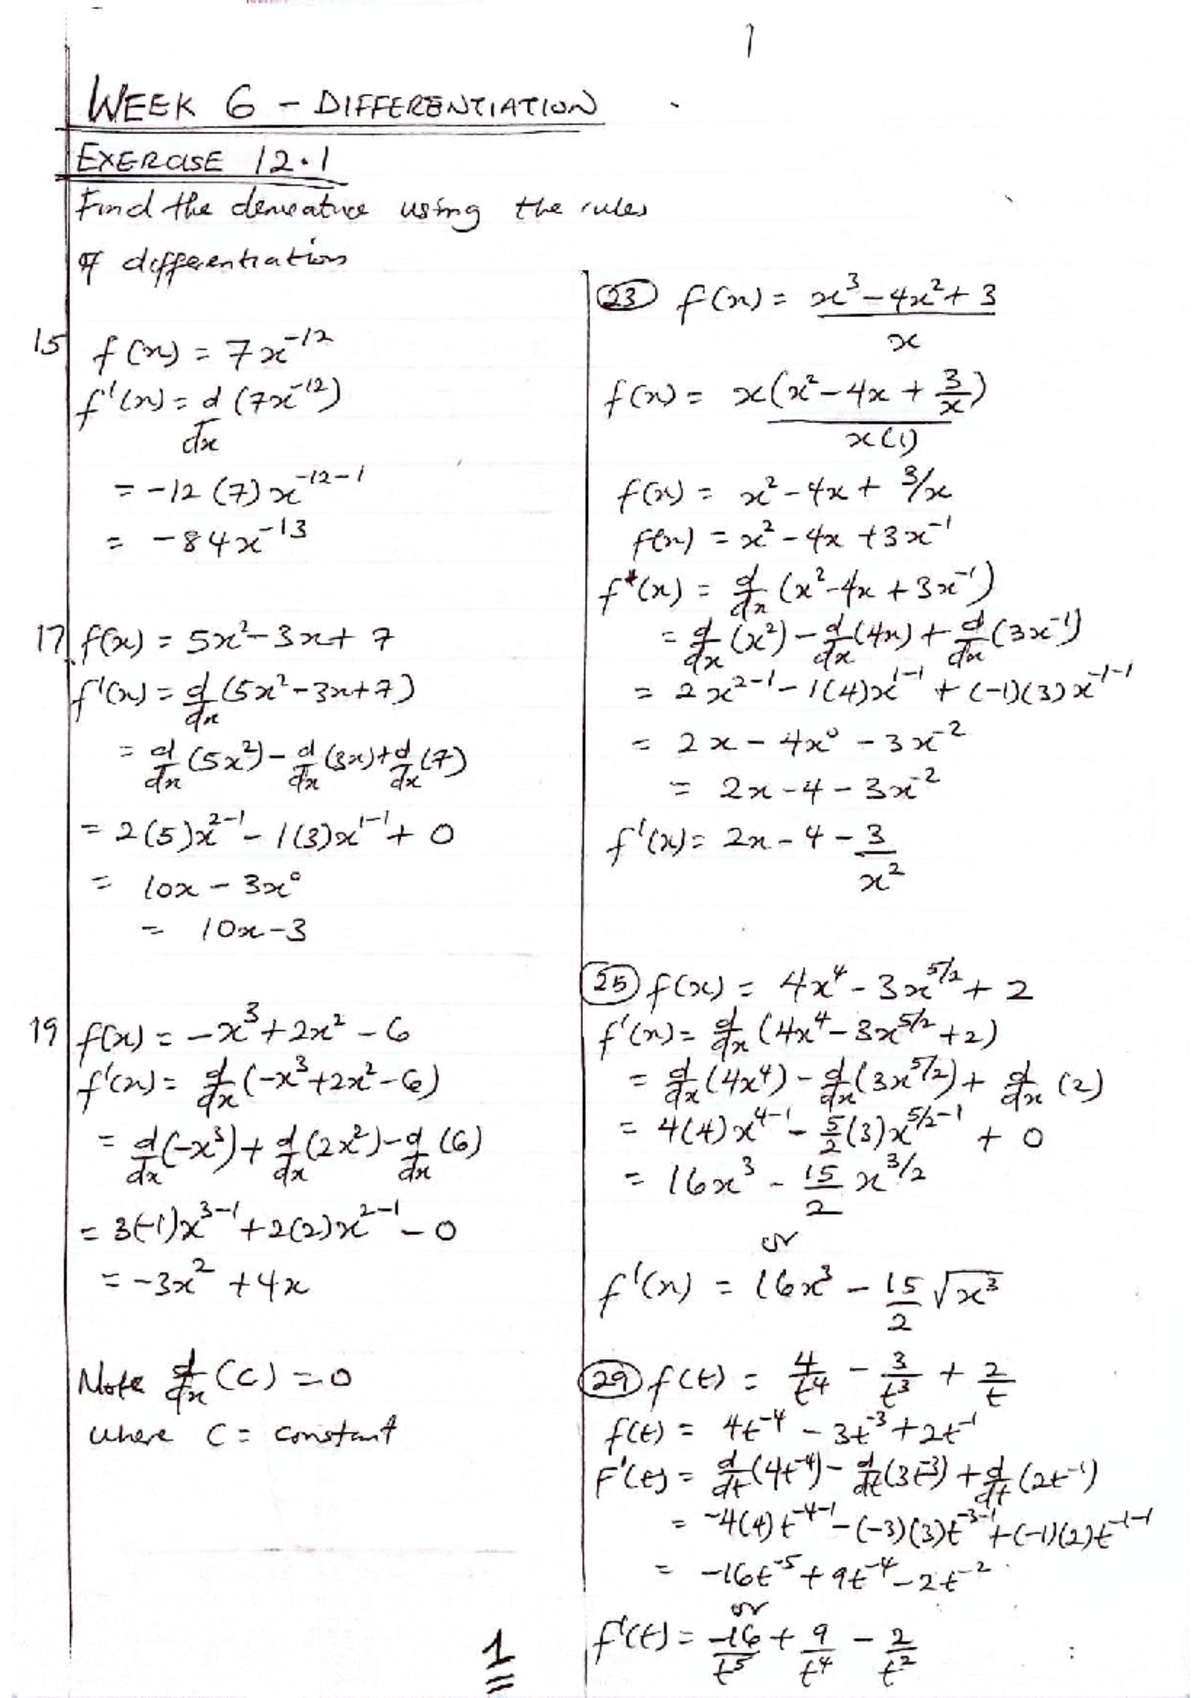 1
WEEK 6 - DIFFERENTIATION
EXERCISE 12.1
Find the derivative using the rules
of differentiation
15 f(x) = 7x^-12
f'(x) = d/dx (7x^-12)
= -12 (7) x^-12-1
= -84x^-13
17 f(x) = 5x² - 3x + 7
f'(x) = d/dx (5x² - 3x + 7)
= d/dx (5x²) - d/dx (3x) + d/dx (7)
= 2(5)x^2-1 - 1(3)x^1-1 + 0
= 10x - 3x⁰
= 10x - 3
19 f(x) = -x³ + 2x² - 6
f'(x) = d/dx (-x³ + 2x² - 6)
= d/dx (-x³) + d/dx (2x²) - d/dx (6)
= 3(-1)x^3-1 + 2(2)x^2-1 - 0
= -3x² + 4x
Note d/dx (C) = 0
where C = constant
23 f(x) = x³ - 4x² + 3 / x
f(x) = x(x² - 4x + 3/x) / x(1)
f(x) = x² - 4x + 3/x
f(x) = x² - 4x + 3x^-1
f*(x) = d/dx (x² - 4x + 3x^-1)
= d/dx (x²) - d/dx (4x) + d/dx (3x^-1)
= 2x^2-1 - 1(4)x^1-1 + (-1)(3)x^-1-1
= 2x - 4x⁰ - 3x^-2
= 2x - 4 - 3x^-2
f'(x) = 2x - 4 - 3/x²
25 f(x) = 4x⁴ - 3x^5/2 + 2
f'(x) = d/dx (4x⁴ - 3x^5/2 + 2)
= d/dx (4x⁴) - d/dx (3x^5/2) + d/dx (2)
= 4(4)x^4-1 - 5/2 (3)x^5/2-1 + 0
= 16x³ - 15/2 x^3/2
or
f'(x) = 16x³ - 15/2 √x³
29 f(t) = 4/t⁴ - 3/t³ + 2/t
f(t) = 4t^-4 - 3t^-3 + 2t^-1
F'(t) = d/dt (4t^-4) - d/dt (3t^-3) + d/dt (2t^-1)
= -4(4)t^-4-1 - (-3)(3)t^-3-1 + (-1)(2)t^-1-1
= -16t^-5 + 9t^-4 - 2t^-2
or
f'(t) = -16/t⁵ + 9/t⁴ - 2/t²
1